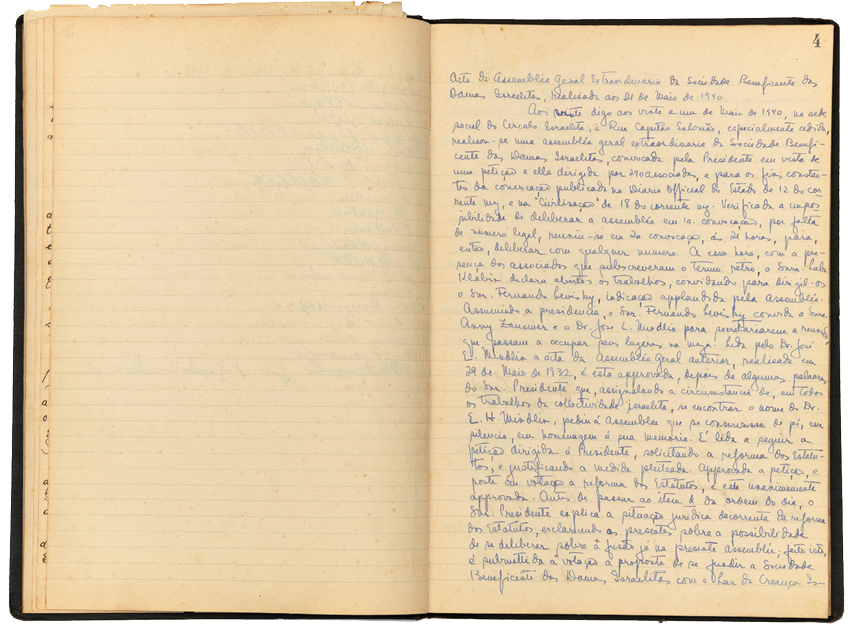 4
Acta da Assembléa Geral Extraordinaria da Sociedade Beneficente das
Damas Israelitas, realisada aos 21 de Maio de 1940.
Aos vinte digo aos vinte e um de Maio de 1940, na sede
social do Circulo Israelita, á Rua Capitão Salomão, especialmente cedida,
realisou-se uma assembléa geral extraordinaria da Sociedade Benefi-
cente das Damas Israelitas, convocada pela Presidente em vista de
uma petição a ella dirigida por associados, e para os fins constan-
tes da convocação publicada no Diario Official do Estado de 12 do cor
rente mez, e na "Civilisação" de 18 do corrente mez. Verificada a impos
sibilidade de deliberar a assembléa em 1a. convocação, por falta
de numero legal, reuniu-se em 2a convocação, ás 21 horas, para,
então, deliberar com qualquer numero. A essa hora, com a pre-
sença dos associados que subscreveram o termo retro, a Snra. Luba
Klabin declara abertos os trabalhos, convidando para dirigil-os
o Snr. Fernando Levisky, indicação applaudida pela Assembléa.
Assumindo a presidencia, o Snr. Fernando Levisky convida a Snra.
Anny Zausmer e o Dr. José E. Mindlin para secretariarem a reunião,
que passam a occupar seus lugares na meza. Lida pelo Dr. José
E. Mindlin a acta da Assembléa Geral anterior, realisada em
29 de Maio de 1932, é esta approvada, depois de algumas palavras
do Snr. Presidente que, assignalando a circumstancia de, em todos
os trabalhos da collectividade israelita, se encontrar o nome do Dr.
E. H. Mindlin, pediu á Assembléa que se conservasse de pé, em
silencio, em homenagem á sua memoria. É lida a seguir a
petição dirigida á Presidente, solicitando a reforma dos Estatu-
tos, e justificando a medida pleiteada. Approvada a petição, e
posta em votação a reforma dos Estatutos, é esta unanimemente
approvada. Antes de passar ao item da ordem do dia, o
Snr. Presidente explica a situação juridica decorrente da reforma
dos Estatutos, esclarecendo os presentes sobre a possibilidade
de se deliberar sobre a fusão já na presente assembléa; feito isto,
é submettida á votação a proposta de se fundir a Sociedade
Beneficente das Damas Israelitas com o Lar da Creança Is-